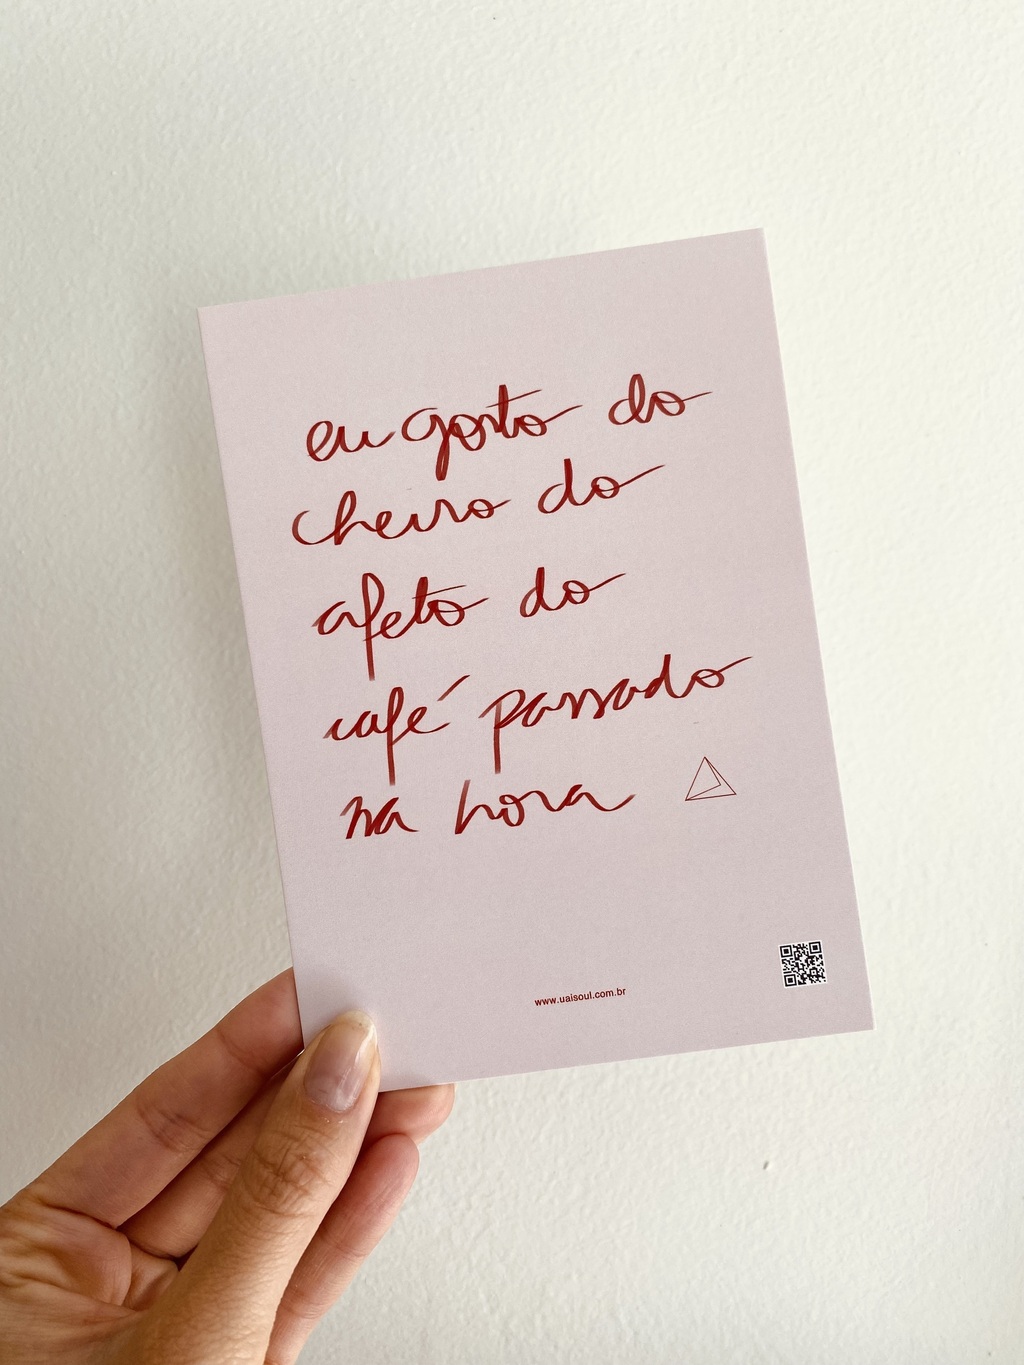 eu gosto do
cheiro do
afeto do
café passado
na hora
www.uaisoul.com.br